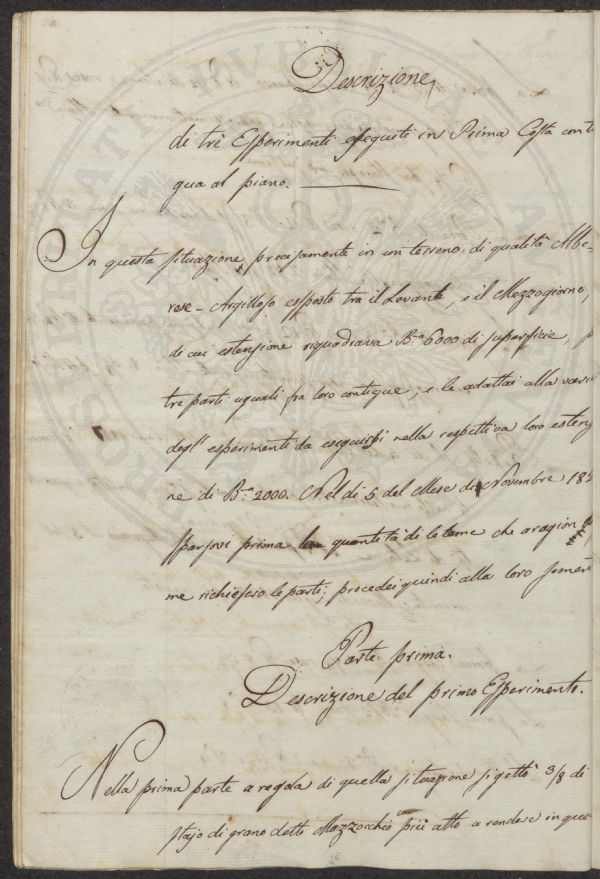 Descrizione
di trè Esperimenti eseguiti in Prima Costa conti
gua al piano.
In questa situazione, precisamente in un terreno di qualità Albe-
rese-Argilloso esposto tra il Levante, e il Mezzogiorno,
di cui estensione riquadrava B.a 6000 di superficie,
tre parti uguali fra loro contigue; e le adattai alla
degl' esperimenti da eseguirsi nella respettiva loro estens
ne di B.a 2000. Nel dì 5 del Mese di Novembre 18
sparsovi prima la quantità di letame che a ragion
me richiesero le parti; procedei quindi alla loro sement
Parte prima.
Descrizione del primo Esperimento.
Nella prima parte a regola di quella situazione si gettò 3/8 di
stajo di grano detto Mazzocchio più atto a rendere in que